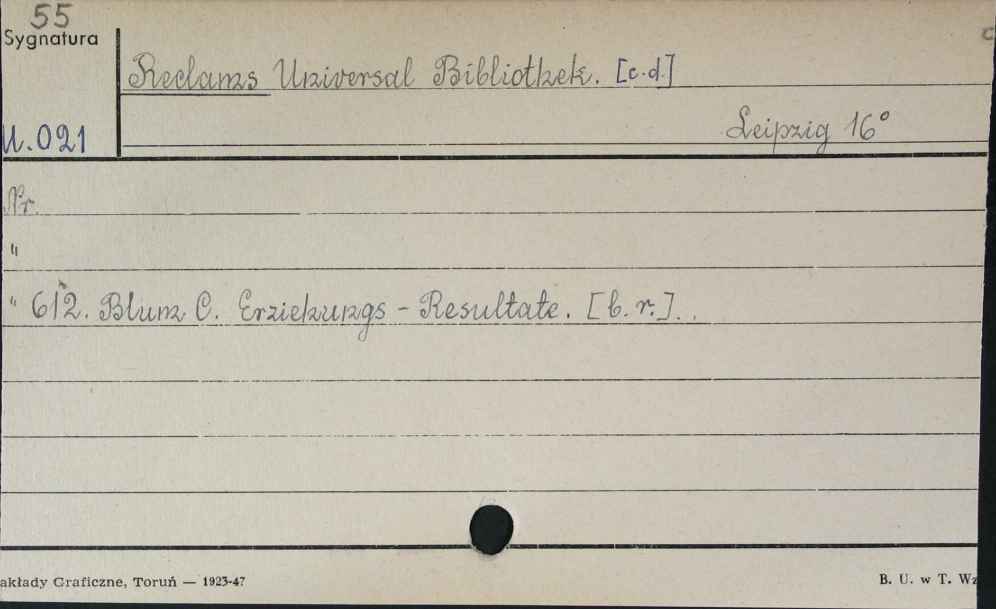 55
Sygnatura
Reclams Universal Bibliothek. [c.d.]
U.021
Leipzig 16°
Nr.
"
" 612. Blum C. Erziehungs - Resultate. [b. r.].
akłady Graficzne, Toruń — 1923-47
B. U. w T. Wz